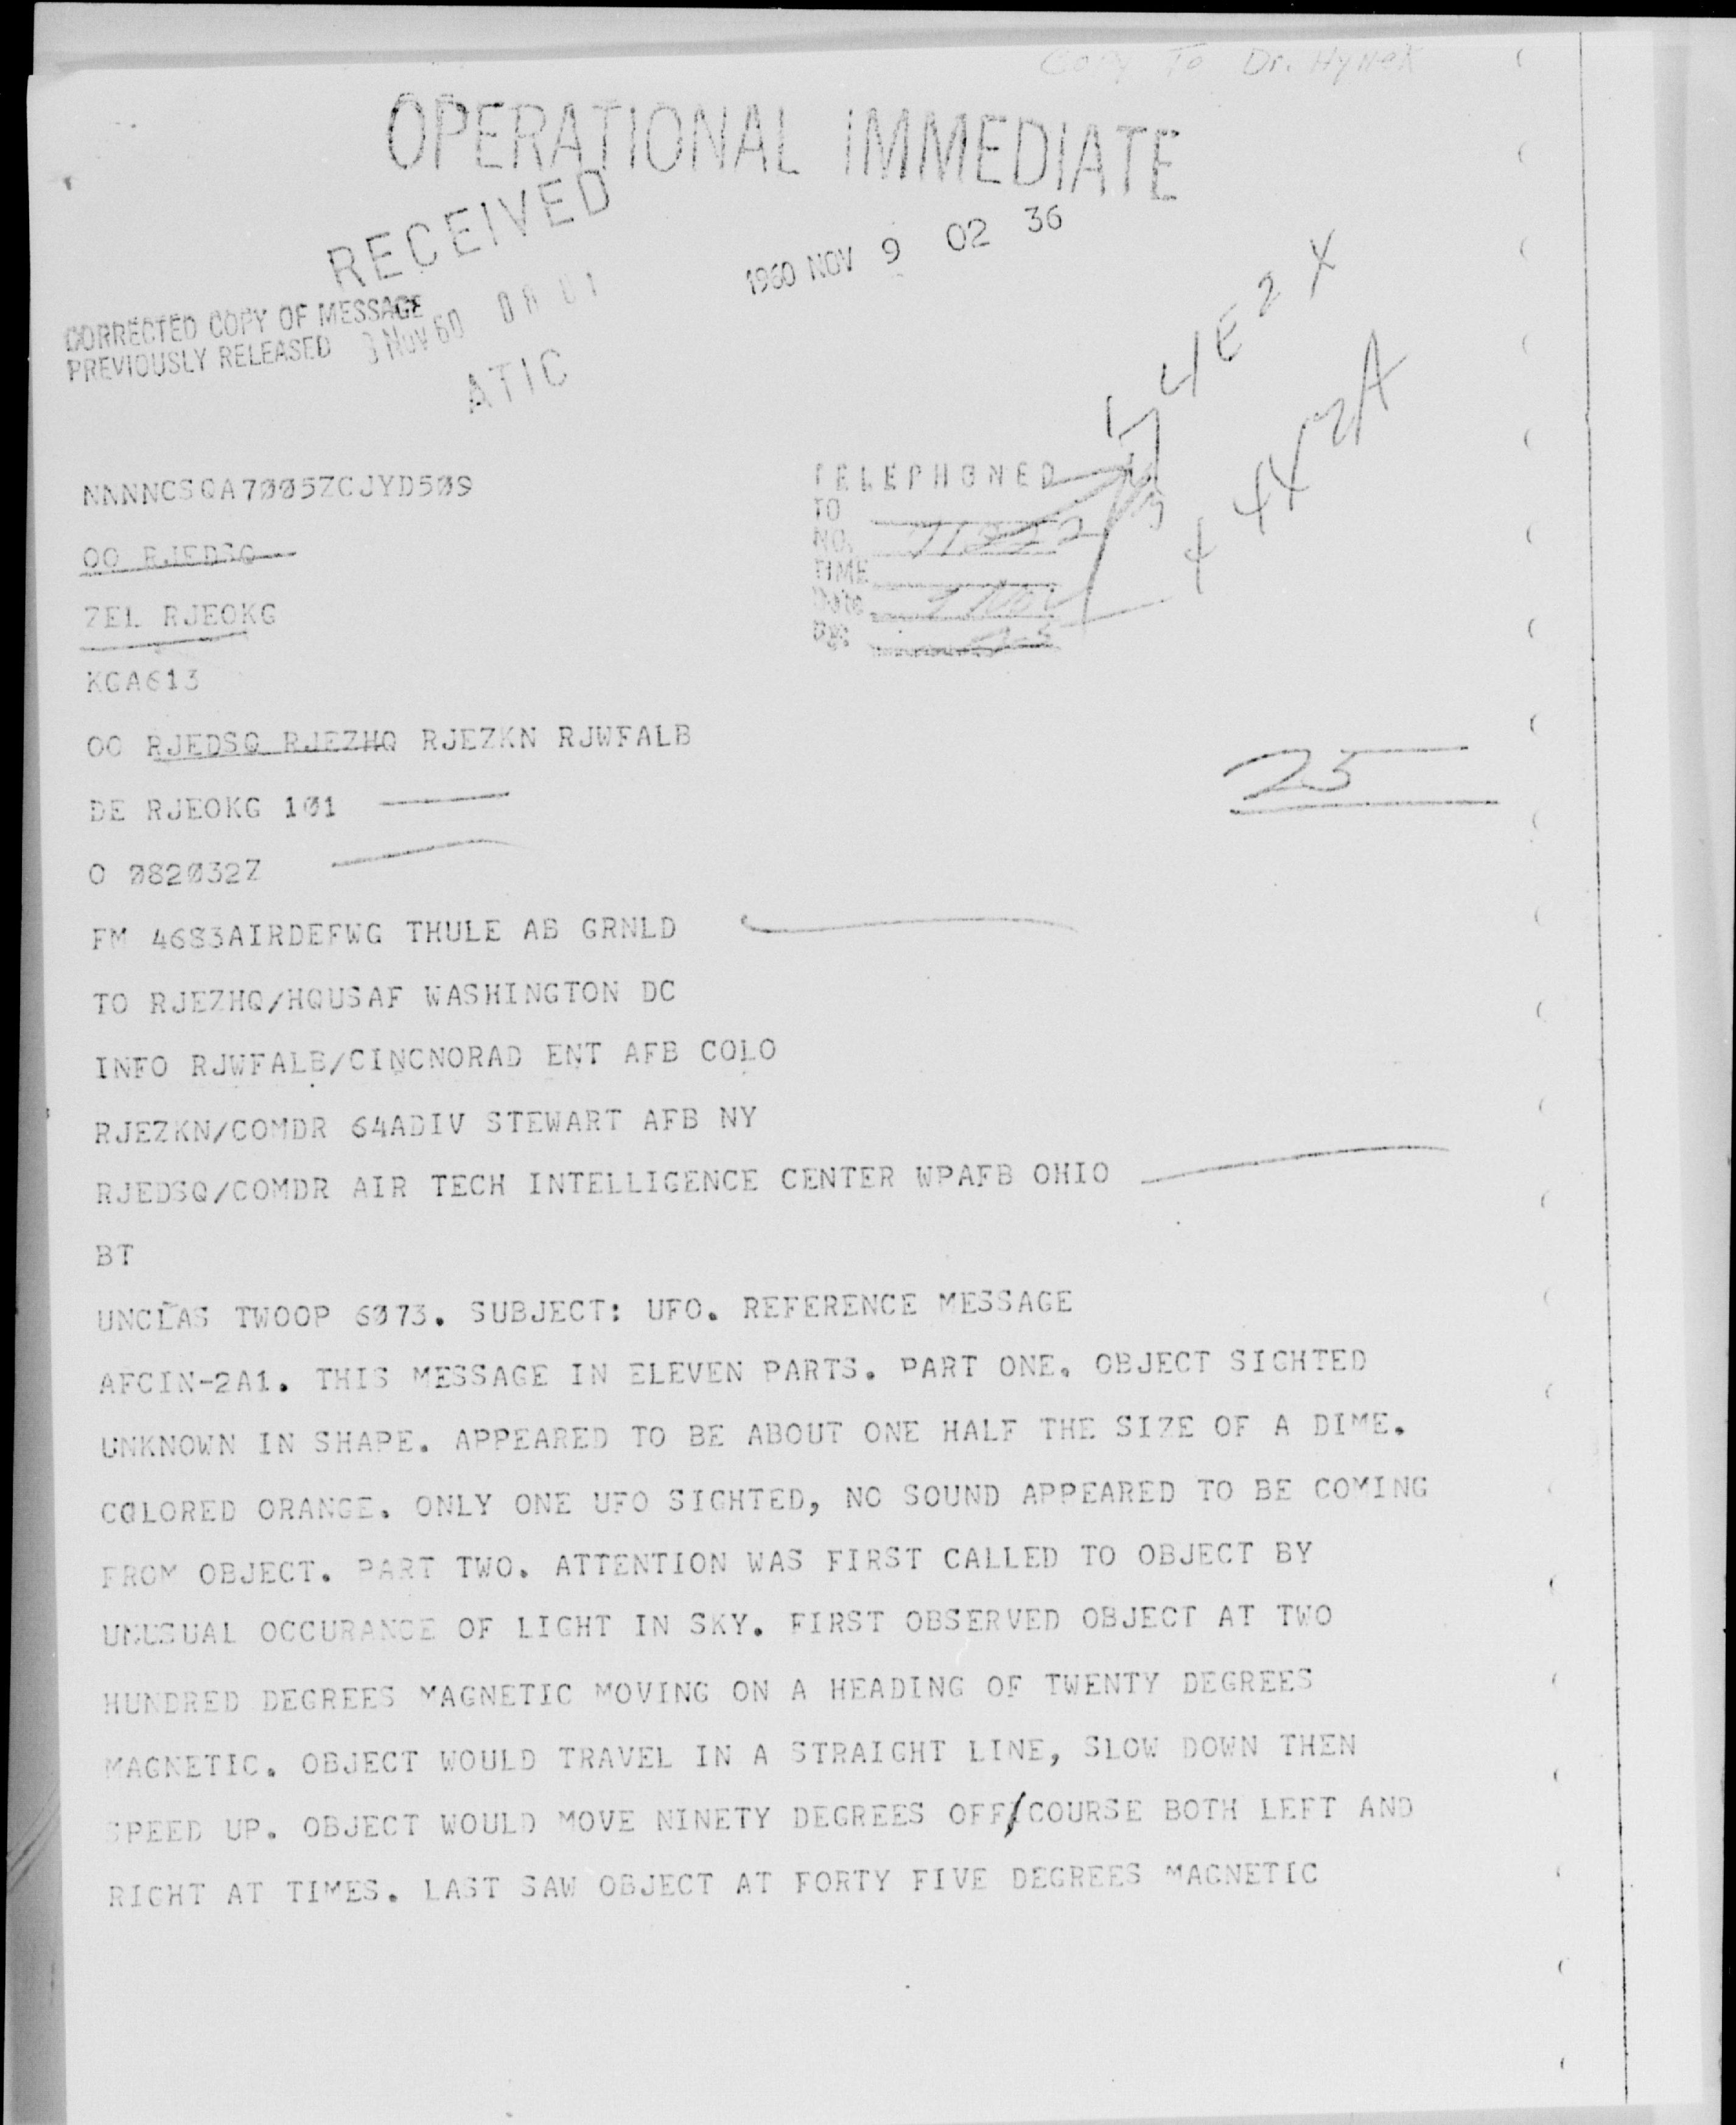 Copy To Dr. Hynek
OPERATIONAL IMMEDIATE
RECEIVED
1960 NOV 9 02 36
CORRECTED COPY OF MESSAGE
PREVIOUSLY RELEASED
NOV 60
ATIC
4E2X
4X2A
NNNNCSQA7005ZCJYD509
TELEPHONED
TO
NO.
OO RJEDSQ
TIME
Date
By:
ZEL RJEOKG
KGA613
OO RJEDSQ RJEZHQ RJEZKN RJWFALB
25
DE RJEOKG 101
O 082032Z
FM 4683AIRDEFWG THULE AB GRNLD
TO RJEZHQ/HQUSAF WASHINGTON DC
INFO RJWFALB/CINCNORAD ENT AFB COLO
RJEZKN/COMDR 64ADIV STEWART AFB NY
RJEDSQ/COMDR AIR TECH INTELLIGENCE CENTER WPAFB OHIO
BT
UNCLAS TWOOP 6073. SUBJECT: UFO. REFERENCE MESSAGE
AFCIN-2A1. THIS MESSAGE IN ELEVEN PARTS. PART ONE. OBJECT SIGHTED
UNKNOWN IN SHAPE. APPEARED TO BE ABOUT ONE HALF THE SIZE OF A DIME.
COLORED ORANGE. ONLY ONE UFO SIGHTED, NO SOUND APPEARED TO BE COMING
FROM OBJECT. PART TWO. ATTENTION WAS FIRST CALLED TO OBJECT BY
UNUSUAL OCCURANCE OF LIGHT IN SKY. FIRST OBSERVED OBJECT AT TWO
HUNDRED DEGREES MAGNETIC MOVING ON A HEADING OF TWENTY DEGREES
MAGNETIC. OBJECT WOULD TRAVEL IN A STRAIGHT LINE, SLOW DOWN THEN
SPEED UP. OBJECT WOULD MOVE NINETY DEGREES OFF/COURSE BOTH LEFT AND
RIGHT AT TIMES. LAST SAW OBJECT AT FORTY FIVE DEGREES MAGNETIC